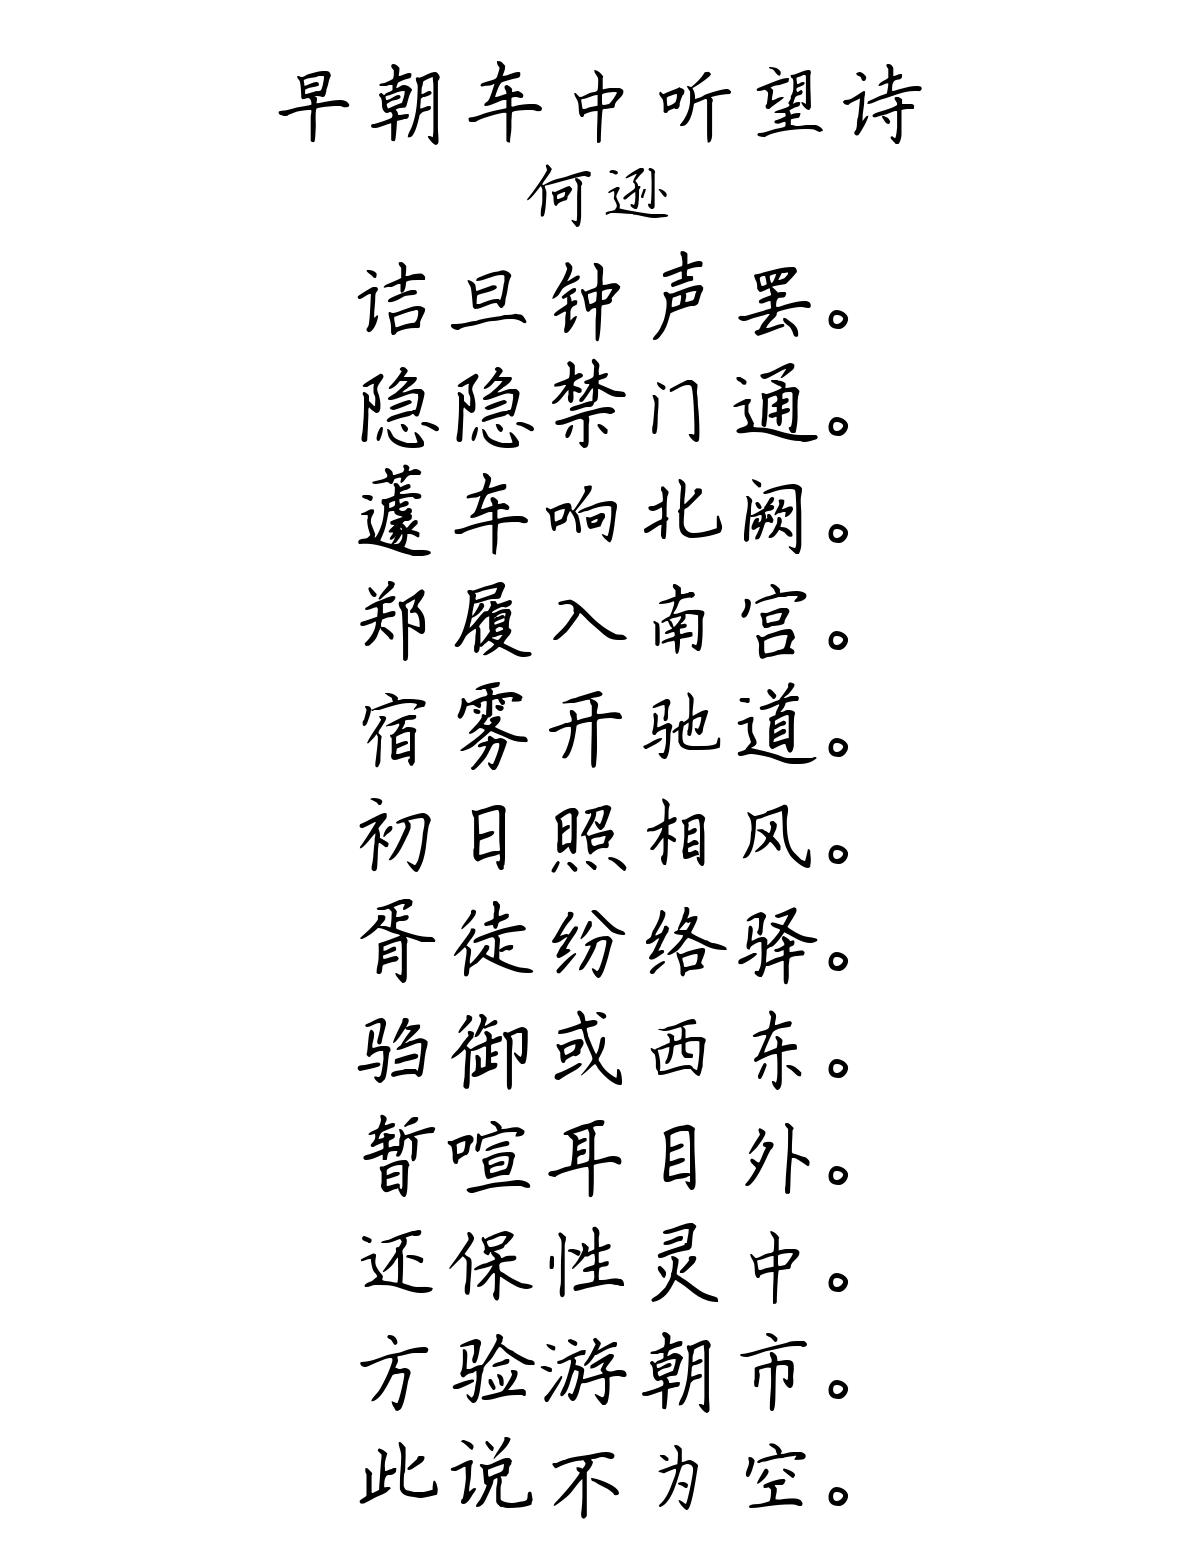 早朝车中听望诗
何逊
诘旦钟声罢。
隐隐禁门通。
蘧车响北阙。
郑履入南宫。
宿雾开驰道。
初日照相风。
胥徒纷络驿。
驺御或西东。
暂喧耳目外。
还保性灵中。
方验游朝市。
此说不为空。